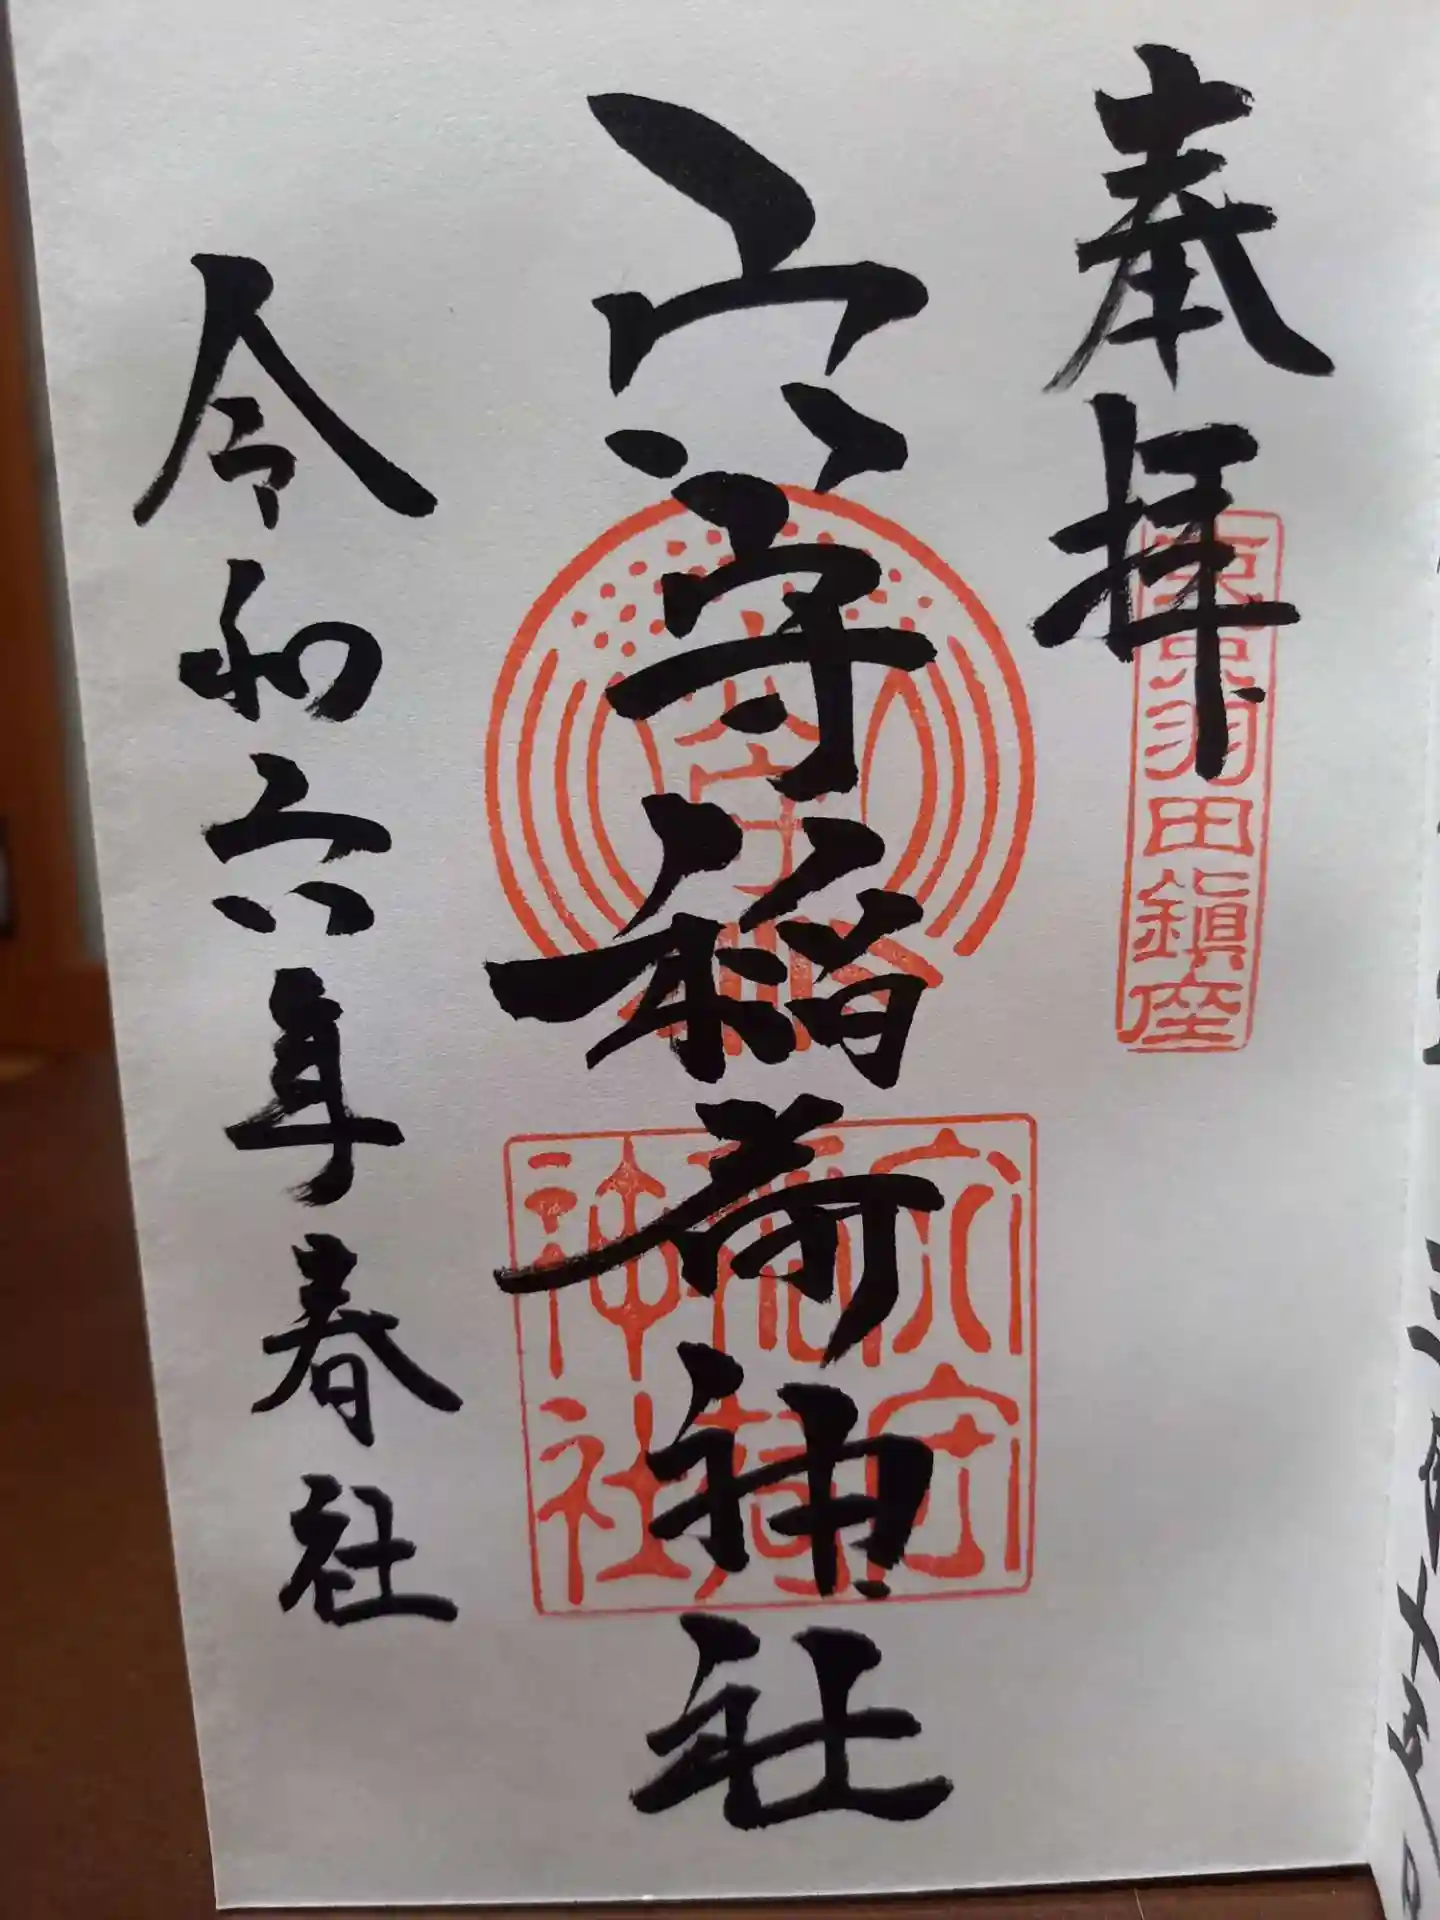 奉拝
東京羽田鎮座
穴守稲荷神社
穴守
穴守稲荷神社
令和六年春社